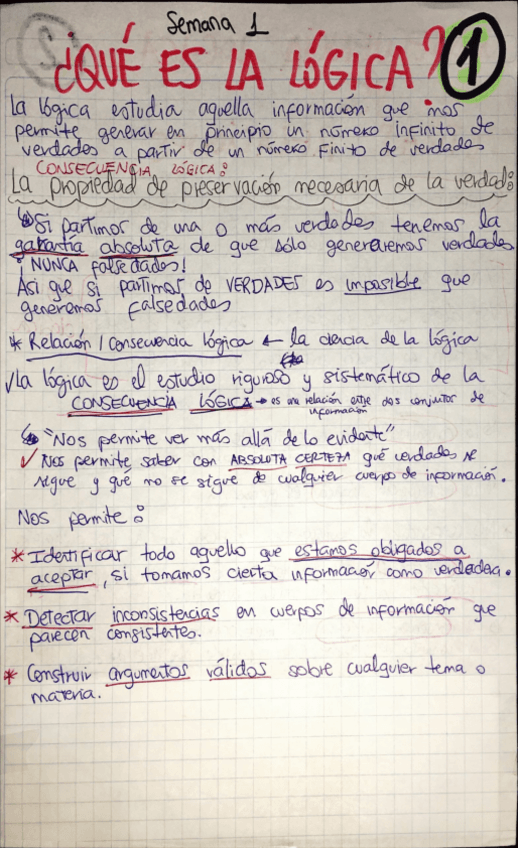 Semana 1
¿QUÉ ES LA LÓGICA?
1
La lógica estudia aquella información que nos
permite generar en principio un número infinito de
verdades a partir de un número finito de verdades
CONSECUENCIA LÓGICA:
La propiedad de preservación necesaria de la verdad:
Si partimos de una o más verdades tenemos la
garantía absoluta de que sólo generaremos verdades
¡NUNCA falsedades!
Asi que si partimos de VERDADES es imposible que
generemos falsedades
* Relación / consecuencia lógica ← la ciencia de la lógica
✓La lógica es el estudio riguroso y sistemático de la
CONSECUENCIA LÓGICA → es una relación entre dos conjuntos de
información
↳ "Nos permite ver más allá de lo evidente"
✓ Nos permite saber con ABSOLUTA CERTEZA qué verdades se
sigue y qué no se sigue de cualquier cuerpo de información.
Nos permite:
* Identificar todo aquello que estamos obligados a
aceptar, si tomamos cierta información como verdadera.
* Detectar inconsistencias en cuerpos de información que
parecen consistentes.
* Construir argumentos válidos sobre cualquier tema o
materia.